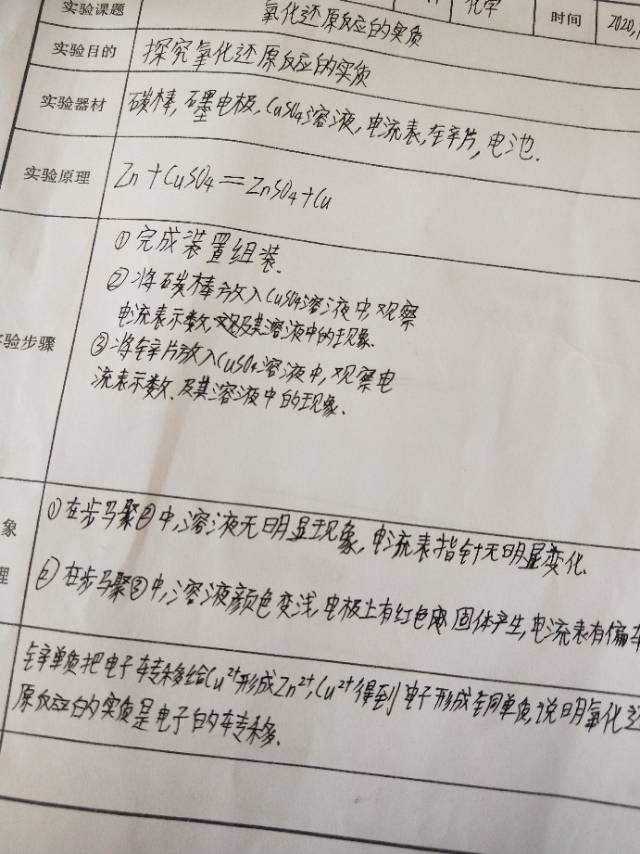 实验课题 氧化还原反应的实质 化学 时间 2020,1
实验目的 探究氧化还原反应的实质
实验器材 碳棒,石墨电极,CuSO4溶液,电流表,锌片,电池.
实验原理 Zn+CuSO4=ZnSO4+Cu
①完成装置组装.
②将碳棒放入CuSO4溶液中,观察
电流表示数,及其溶液中的现象.
验步骤
③将锌片放入CuSO4溶液中,观察电
流表示数.及其溶液中的现象.
象
①在步骤②中,溶液无明显现象,电流表指针无明显变化.
理
②在步骤③中,溶液颜色变浅,电极上有红色固体产生,电流表有偏转
锌单质把电子转移给Cu²⁺形成Zn²⁺,Cu²⁺得到电子形成铜单质,说明氧化还
原反应的实质是电子的转移.